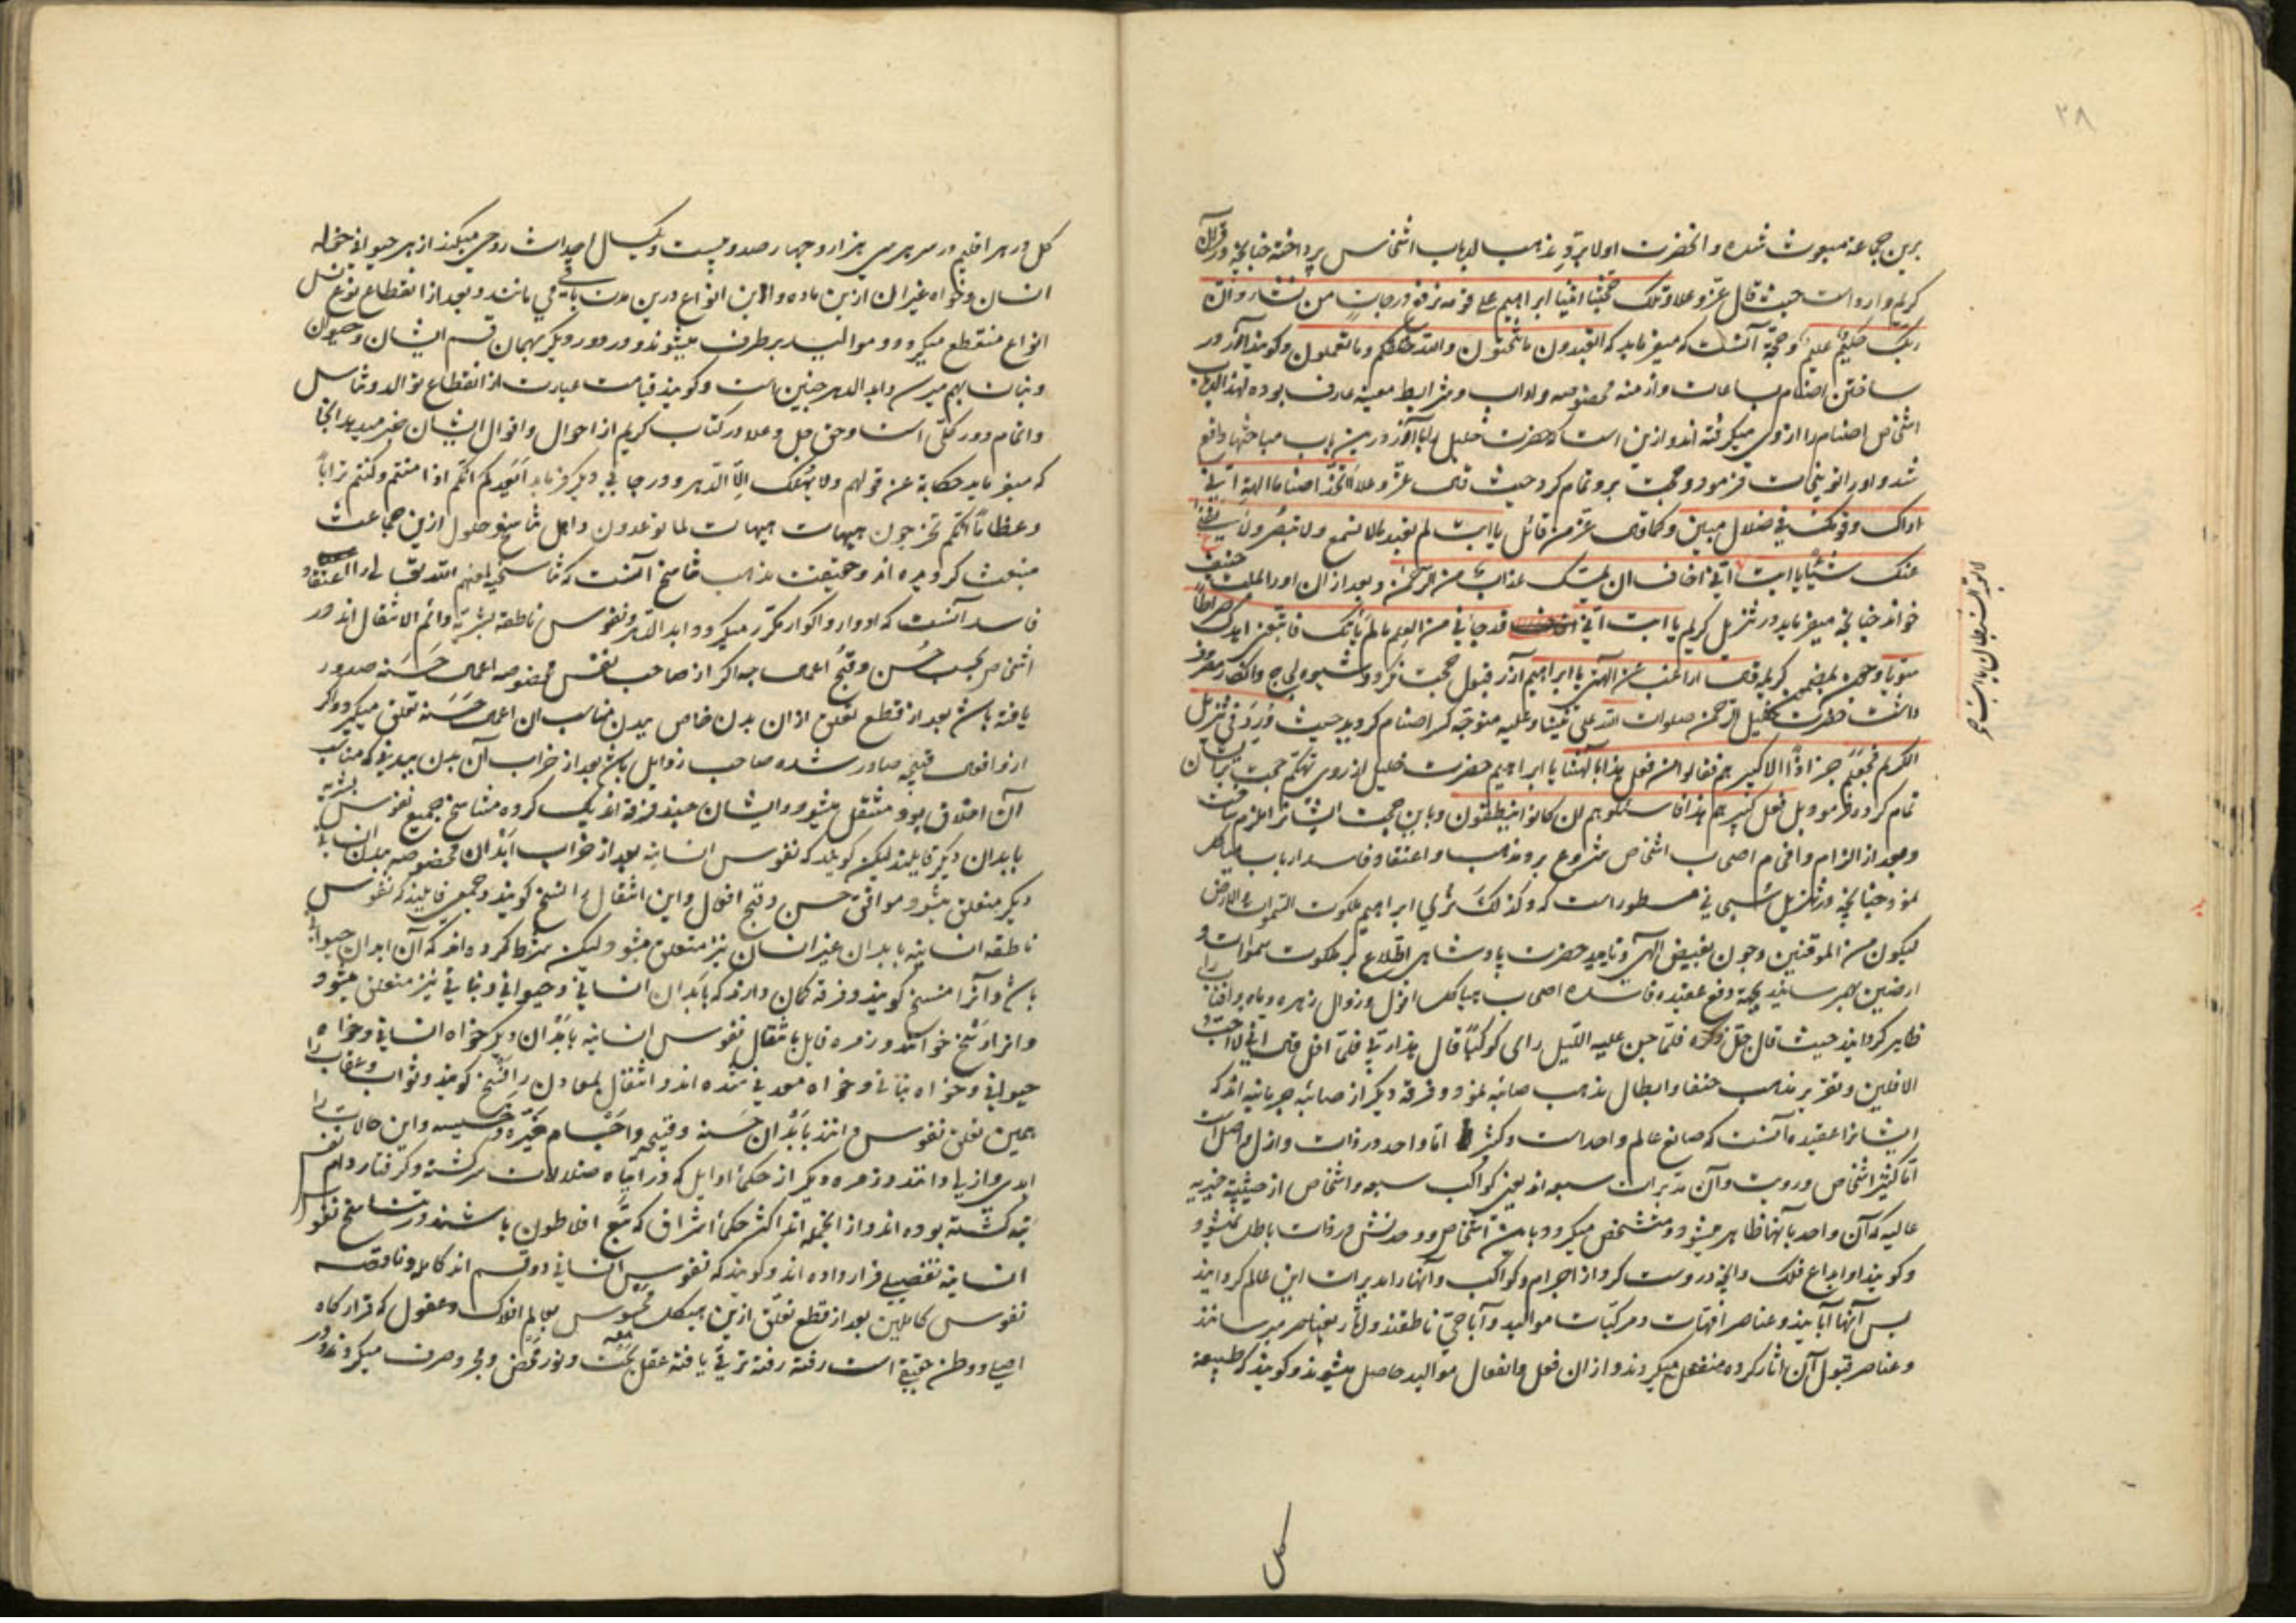 ۳۸
برین جماعة مبعوث شده و آنحضرت اولا برد مذهب ارباب اشخاص پرداخته چنانچه در قرآن
کریم وارد است حیث قال عز وعلا وتلک حجتنا آتینا ابراهیم علی قومه نرفع درجات من نشاء وان
ربک حکیم علیم وحجة آنست که میفرماید که اتعبدون ما تنحتون والله خلقکم وما تعملون وکویند آزر در
ساختن اصنام ساعات وازمنه مخصوصه واداب وشرایط معینه عارف بوده لهذا ارباب
اشخاص اصنام را ازوی میکرفته اند وازین است که حضرت خلیل را با آزر درین باب مباحثها واقع
شد و اورا توبیخات فرمود وحجت برو تمام کرد حیث قال عز وعلا اتتخذ اصناما الهة انی
اراک وقومک فی ضلال مبین وکما قال عز من قائل یا ابت لم تعبد ما لا تسمع ولا تبصر ولا یغنی
عنک شیئا یا ابت انی اخاف ان یمسک عذاب من الرحمن وبعد از آن اورا بملت حنیف
خواند چنانچه میفرماید در تنزیل کریم یا ابت انی قد جاءنی من العلم ما لم یاتک فاتبعنی اهدک صراطا
سویا وچون بمضمون کریمه قال اراغب انت عن الهتی یا ابراهیم آزر قبول حجت نکرد وشیوه لجاج وانکار مصروف
داشت حضرت خلیل الرحمن صلوات الله علی نبینا وعلیه متوجه کسر اصنام کردید حیث ورد فی تنزیل
الکریم فجعلهم جذاذا الا کبیرهم فقالوا من فعل هذا بالهتنا یا ابراهیم حضرت خلیل از روی تهکم حجت برایشان
تمام کرد وفرمود بل فعل کبیرهم هذا فاسئلوهم ان کانوا ینطقون وباین حجت ایشانرا ملزم ساخت
وبعد از الزام وافحام اصحاب اشخاص شروع برد مذهب واعتقاد فاسد ارباب هیاکل
نمود چنانچه در تنزیل سبحانی مسطور است که وکذلک نری ابراهیم ملکوت السموات والارض
لیکون من الموقنین وچون بفیض الهی وتایید حضرت پادشاهی اطلاع بر ملکوت سموات و
ارضین بهم رسانید بجهة دفع عقیده فاسده اصحاب هیاکل افول وزوال زهره وماه وافتاب را
ظاهر کردانید حیث قال جل ذکره فلما جن علیه اللیل رای کوکبا قال هذا ربی فلما افل قال انی لا احب
الافلین وتقریر مذهب حنفا وابطال مذهب صائبه نمود وفرقه دیکر از صائبه حرنانیه اند که
ایشانرا عقیده آنست که صانع عالم واحداست وکثیر اما واحد در ذات وازل واصل است
اما کثیر اشخاص در رویت وآن مدبرات سبعه اند یعنی کواکب سبعه واشخاص ارضیه خیریه
عالیه که آن واحد بآنها ظاهر میشود ومتشخص میکردد باین اشخاص ووحدتش در ذات باطل نمیشود
وکویند او ابداع فلک وآنچه دروست کرد از اجرام وکواکب وآنهارا مدبرات این عالم کردانید
پس آنها آبایند وعناصر امهات ومرکبات موالید وآبا حی ناطقند وآثار بعناصر میرسانند
وعناصر قبول آن اثار کرده منفعل میکردند واز آن فعل وانفعال موالید حاصل میشوند وکویند که طبیعة
کل
کل در هر اقلیم در سر هر سی هزار وچهار صد وبیست ویکسال احداث زوجی میکند از هر حیوانی خواه
انسان وخواه غیر ان از نر وماده واین انواع درین مدت باقی می مانند وبعد از انقطاع نوع نسل
انواع منقطع میکردد وموالید برطرف میشوند ودر دور دیکر همان قسم ایشان وحیوان
ونبات بهم میرسد وابد الدهر چنین است وکویند قیامت عبارت از انقطاع توالد وتناسل
واتمام دور کلی است وحق جل وعلا در کتاب کریم از احوال واقوال ایشان خبر میدهد آنجا
که میفرماید حکایة عن قولهم وما یهلکنا الا الدهر ودر جای دیکر فرماید ایعدکم انکم اذا متم وکنتم ترابا
وعظاما انکم مخرجون هیهات هیهات لما توعدون واهل تناسخ وحلول ازین جماعت
منبعث کردیده اند وحقیقت مذهب تناسخ آنست که تناسخیه لعنهم الله تعالی را اعتقاد
فاسد آنست که ادوار واکوار مکرر میکردد ابد الدهر ونفوس ناطقه بشریه دائم الانتقال اند در
اشخاص بحسب حسن وقبح اعمال چه اکر از صاحب نفس مخصوصه اعمال حسنه صدور
یافته باشد بعد از قطع تعلق از ان بدن خاص ببدن مناسب آن اعمال حسنه تعلق میکیرد واکر
ازو افعال قبیحه صادر شده صاحب رذایل باشد بعد از خراب آن بدن ببدنی که مناسب
آن اخلاق بود منتقل میشود وایشان چند فرقه اند یک کروه تناسخ جمیع نفوس بشریه
بابدان دیکر قایلند لیکن کویند که نفوس انسانیه بعد از خراب ابدان مخصوصه ببدن انسانی
دیکر متعلق میشود موافق حسن وقبح افعال واین انتقال را نسخ کویند وجمعی قایلند که نفوس
ناطقه انسانیه بابدان غیر انسان نیز متعلق میشود ولیکن شرط کرده اند که آن ابدان حیوانی
باشد وآنرا مسخ کویند وفرقه کمان دارند که بابدان انسانی وحیوانی ونباتی نیز متعلق میشود
وانرا رسخ خوانند وزمره قایل بانتقال نفوس انسانیه بابدان دیکر خواه انسانی وخواه
حیوانی وخواه نباتی وخواه معدنی شده اند وانتقال بمعادن را فسخ کویند وثواب وعقاب را
همین تعلق نفوس دانند بابدان حسنه وقبیحه واجسام خیره وخسیسه واین حالات را
ابدی وازلی دانند وزمره دیکر از حکماء اوایل که در تیاه ضلالات سرکشته وکرفتار دام نفس
تبه کشته بوده اند واز آنجمله اند اکثر حکماء اشراق که تبع افلاطون باشند در تناسخ نفوس
انسانیه تفصیلی قرار داده اند وکویند که نفوس انسانی دو قسم اند کامله وناقصه
نفوس کاملین بعد از قطع تعلق ازین هیکل محسوس بعالم افلاک وعقول که قرارکاه
اصلی ووطن حقیقی است رفته رفته ترقی یافته عقل بحت ونور محض ومجرد صرف میکردند ودر